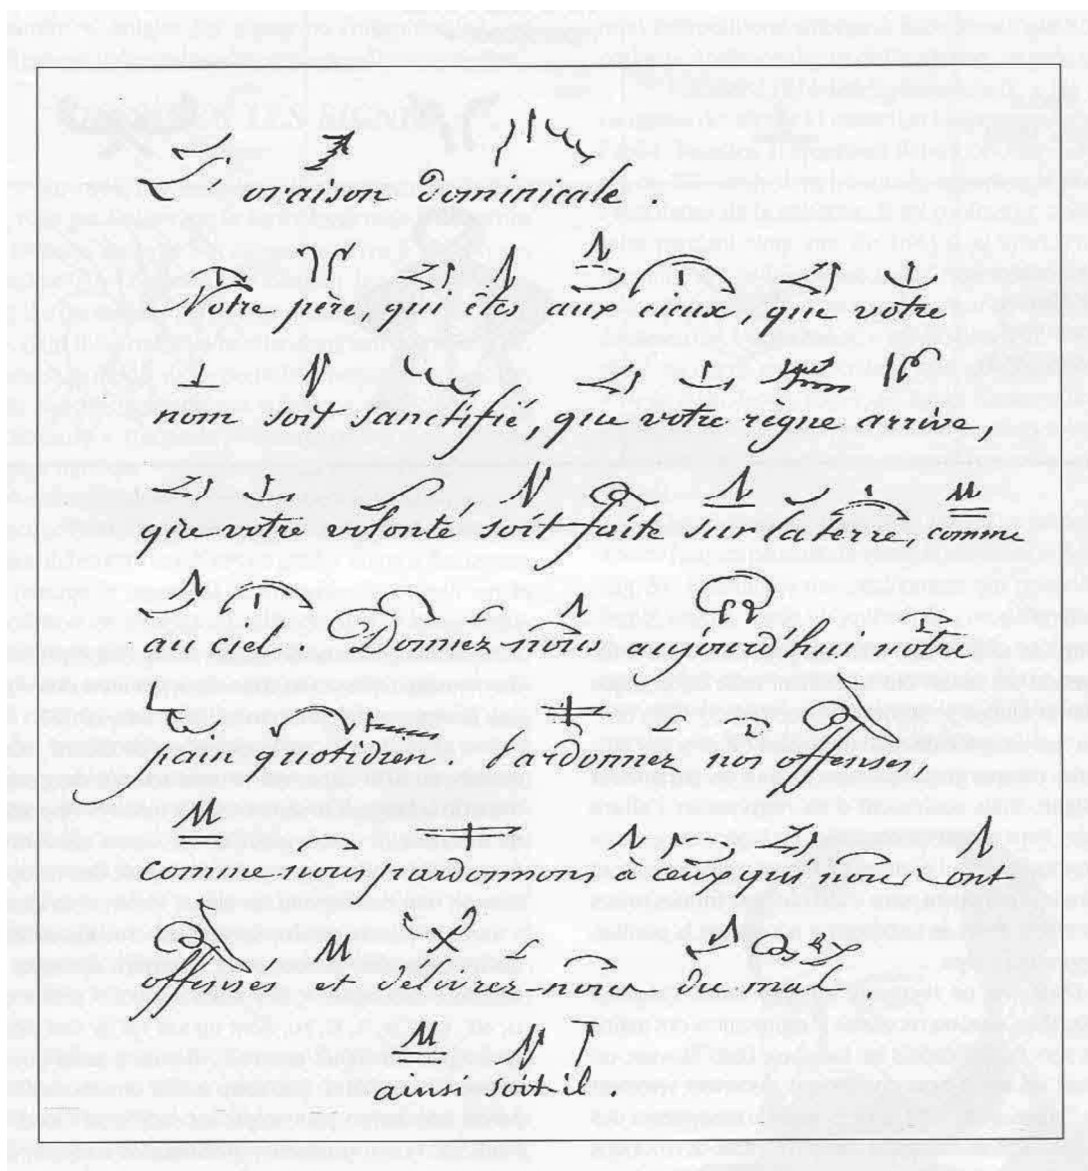 L'oraison dominicale.
Notre père, qui êtes aux cieux, que votre
nom soit sanctifié, que votre règne arrive,
que votre volonté soit faite sur la terre, comme
au ciel. Donnez nous aujourd'hui notre
pain quotidien. Pardonnez nos offenses,
comme nous pardonnons à ceux qui nous ont
offensés et délivrez-nous du mal.
ainsi soit-il.